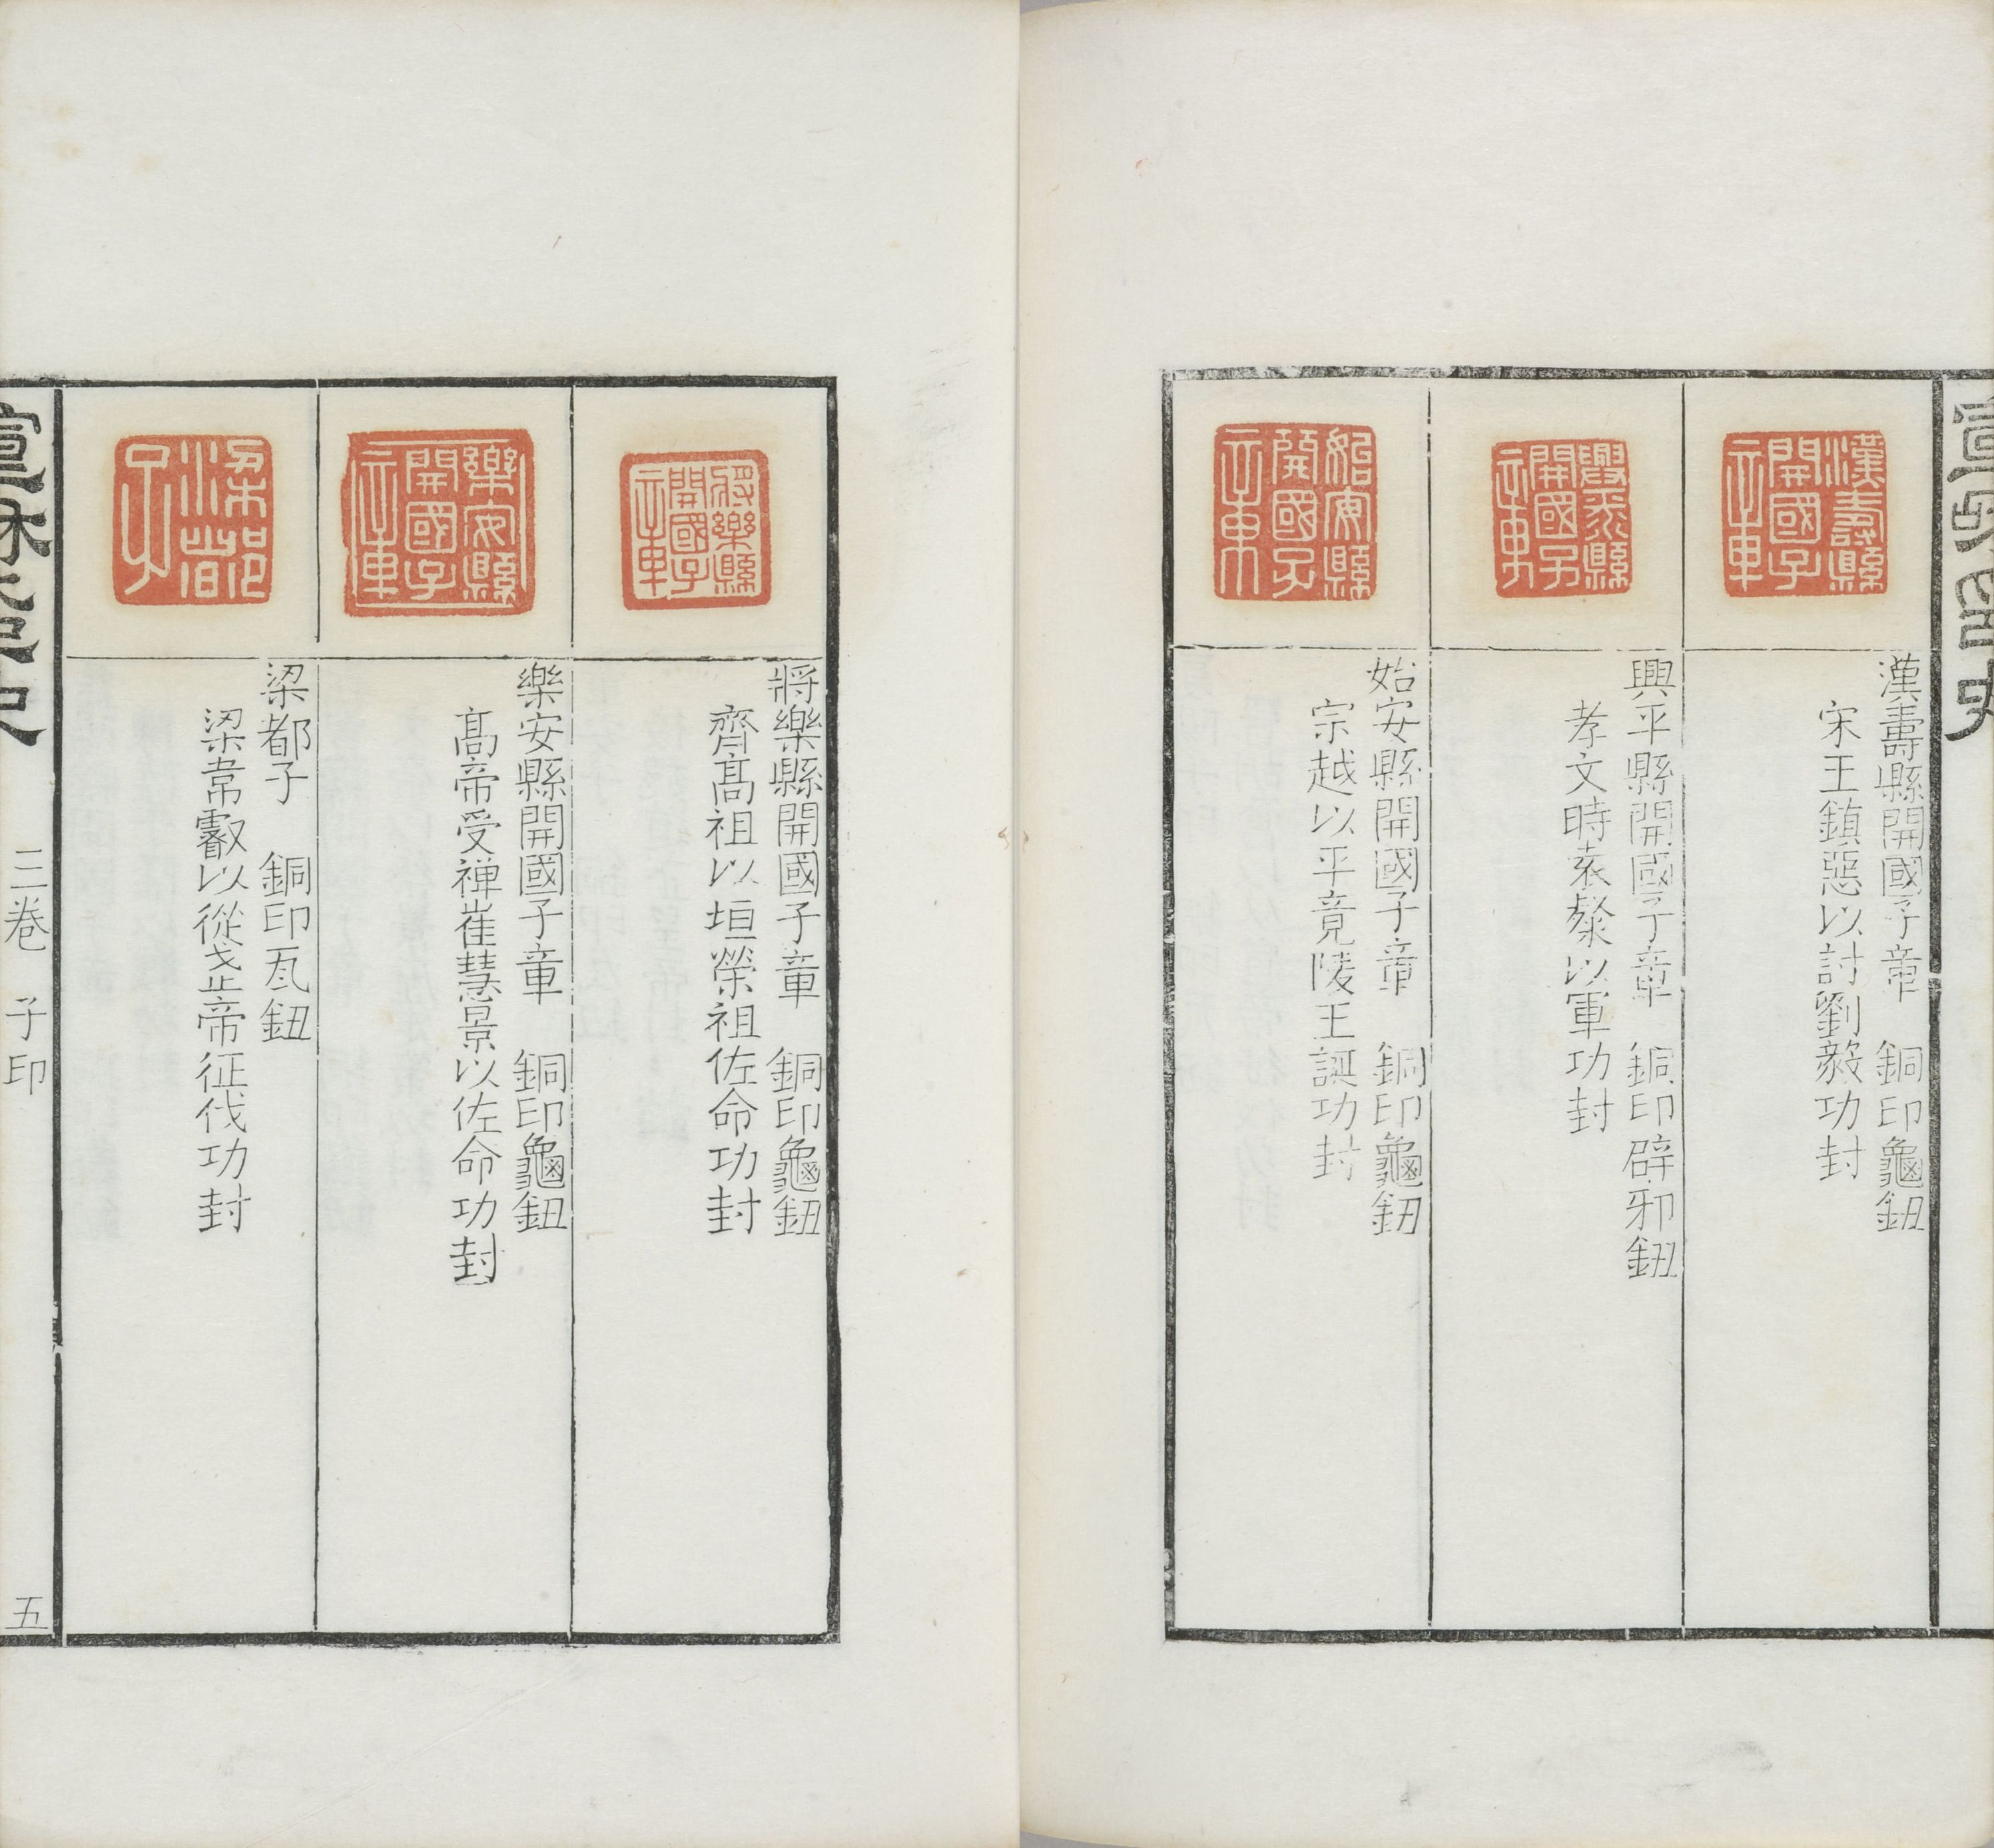 漢壽縣開國子章
漢壽縣開國子章　銅印龜鈕
宋王鎮惡以討劉毅功封
興平縣開國子章
興平縣開國子章　銅印辟邪鈕
孝文時袁粲以軍功封
始安縣開國子章
始安縣開國子章　銅印龜鈕
宗越以平竟陵王誕功封
將樂縣開國子章
將樂縣開國子章　銅印龜鈕
齊髙祖以垣榮祖佐命功封
樂安縣開國子章
樂安縣開國子章　銅印龜鈕
髙帝受禅崔慧景以佐命功封
梁都子
梁都子　銅印瓦鈕
梁韋叡以從武帝征伐功封
三卷　子印
五